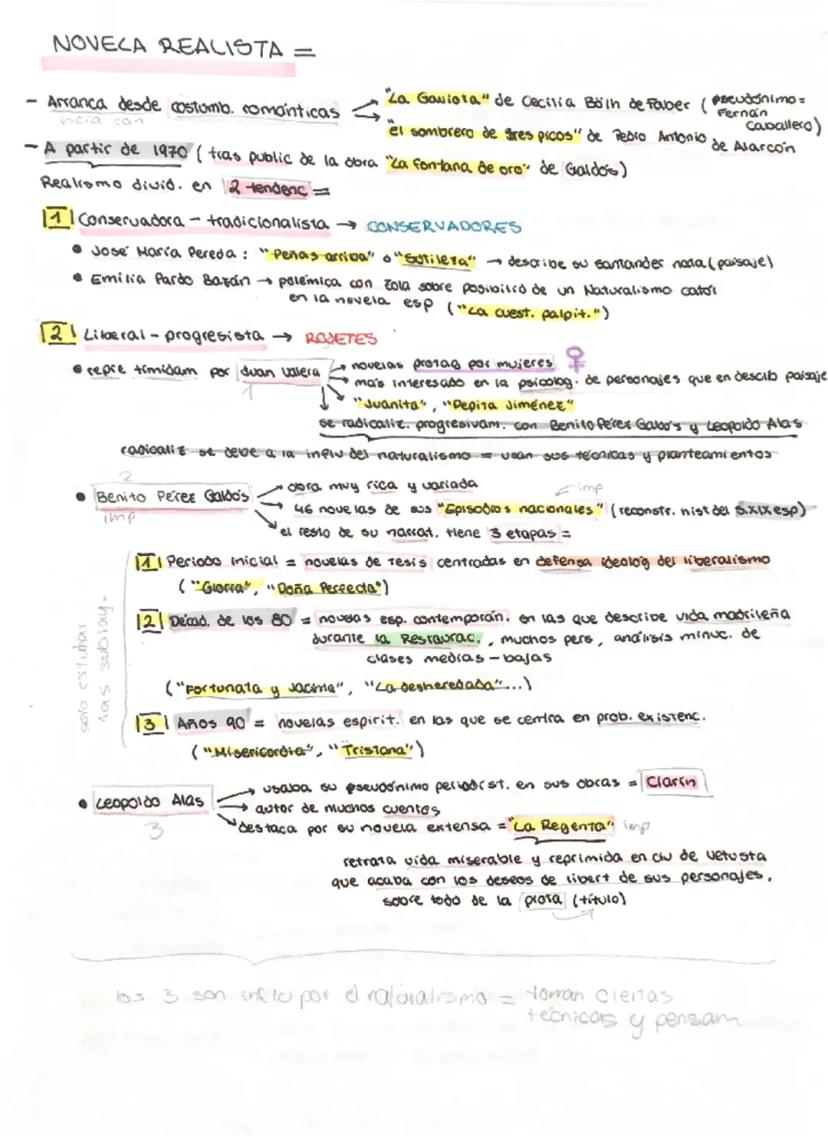 NOVELA REALISTA =
- Arranca desde costumb. románticas → "La Gaviota" de Cecilia Bölh de Faber ( pseudónimo = Fernán Caballero)
inicia con
→ "el sombrero de tres picos" de Pedro Antonio de Alarcón
- A partir de 1970 ( tras public de la obra "La Fontana de oro" de Galdós)
Realismo divid. en 2 tendenc =
1 Conservadora - tradicionalista → CONSERVADORES
• José María Pereda : "Peñas arriba" o "Sotileza" → describe su santander nata (paisaje)
• Emilia Pardo Bazán → polémica con Zola sobre posibilid de un Naturalismo catól
en la novela esp ("La cuest. palpit.")
2 Liberal - progresista → ROJETES
• repre tímidam por Juan Valera → novelas protag por mujeres ♀
1 → más interesado en la psicolog. de personajes que en describ paisaje
→ "Juanita", "Pepita Jiménez"
se radicaliz. progresivam. con Benito Pérez Galdós y Leopoldo Alas
radicaliz se debe a la influ del naturalismo = usan sus técnicas y planteamientos
2
• Benito Pérez Galdós → obra muy rica y variada
imp
→ 46 novelas de sus "Episodios nacionales" (reconstr. hist del s.XIX esp)
imp
→ el resto de su narrat. tiene 3 etapas =
1 Periodo inicial = novelas de tesis centradas en defensa ideolog del liberalismo
( "Gloria", "Doña Perfecta")
2 Décad. de los 80 = novelas esp. contemporán. en las que describe vida madrileña
durante la Restaurac. , muchos pers, análisis minuc. de
clases medias - bajas
("Fortunata y Jacinta", "La desheredada"...)
3 Años 90 = novelas espirit. en las que se centra en prob. existenc.
( "Misericordia", "Tristana")
solo estudiar
las subray.
• Leopoldo Alas → usaba su pseudónimo periodíst. en sus obras = Clarín
3 → autor de muchos cuentos
→ destaca por su novela extensa = "La Regenta" imp
retrata vida miserable y reprimida en ciu de Vetusta
que acaba con los deseos de libert de sus personajes,
sobre todo de la prota (título)
los 3 son influ por el naturalismo = toman ciertas
técnicas y pensam